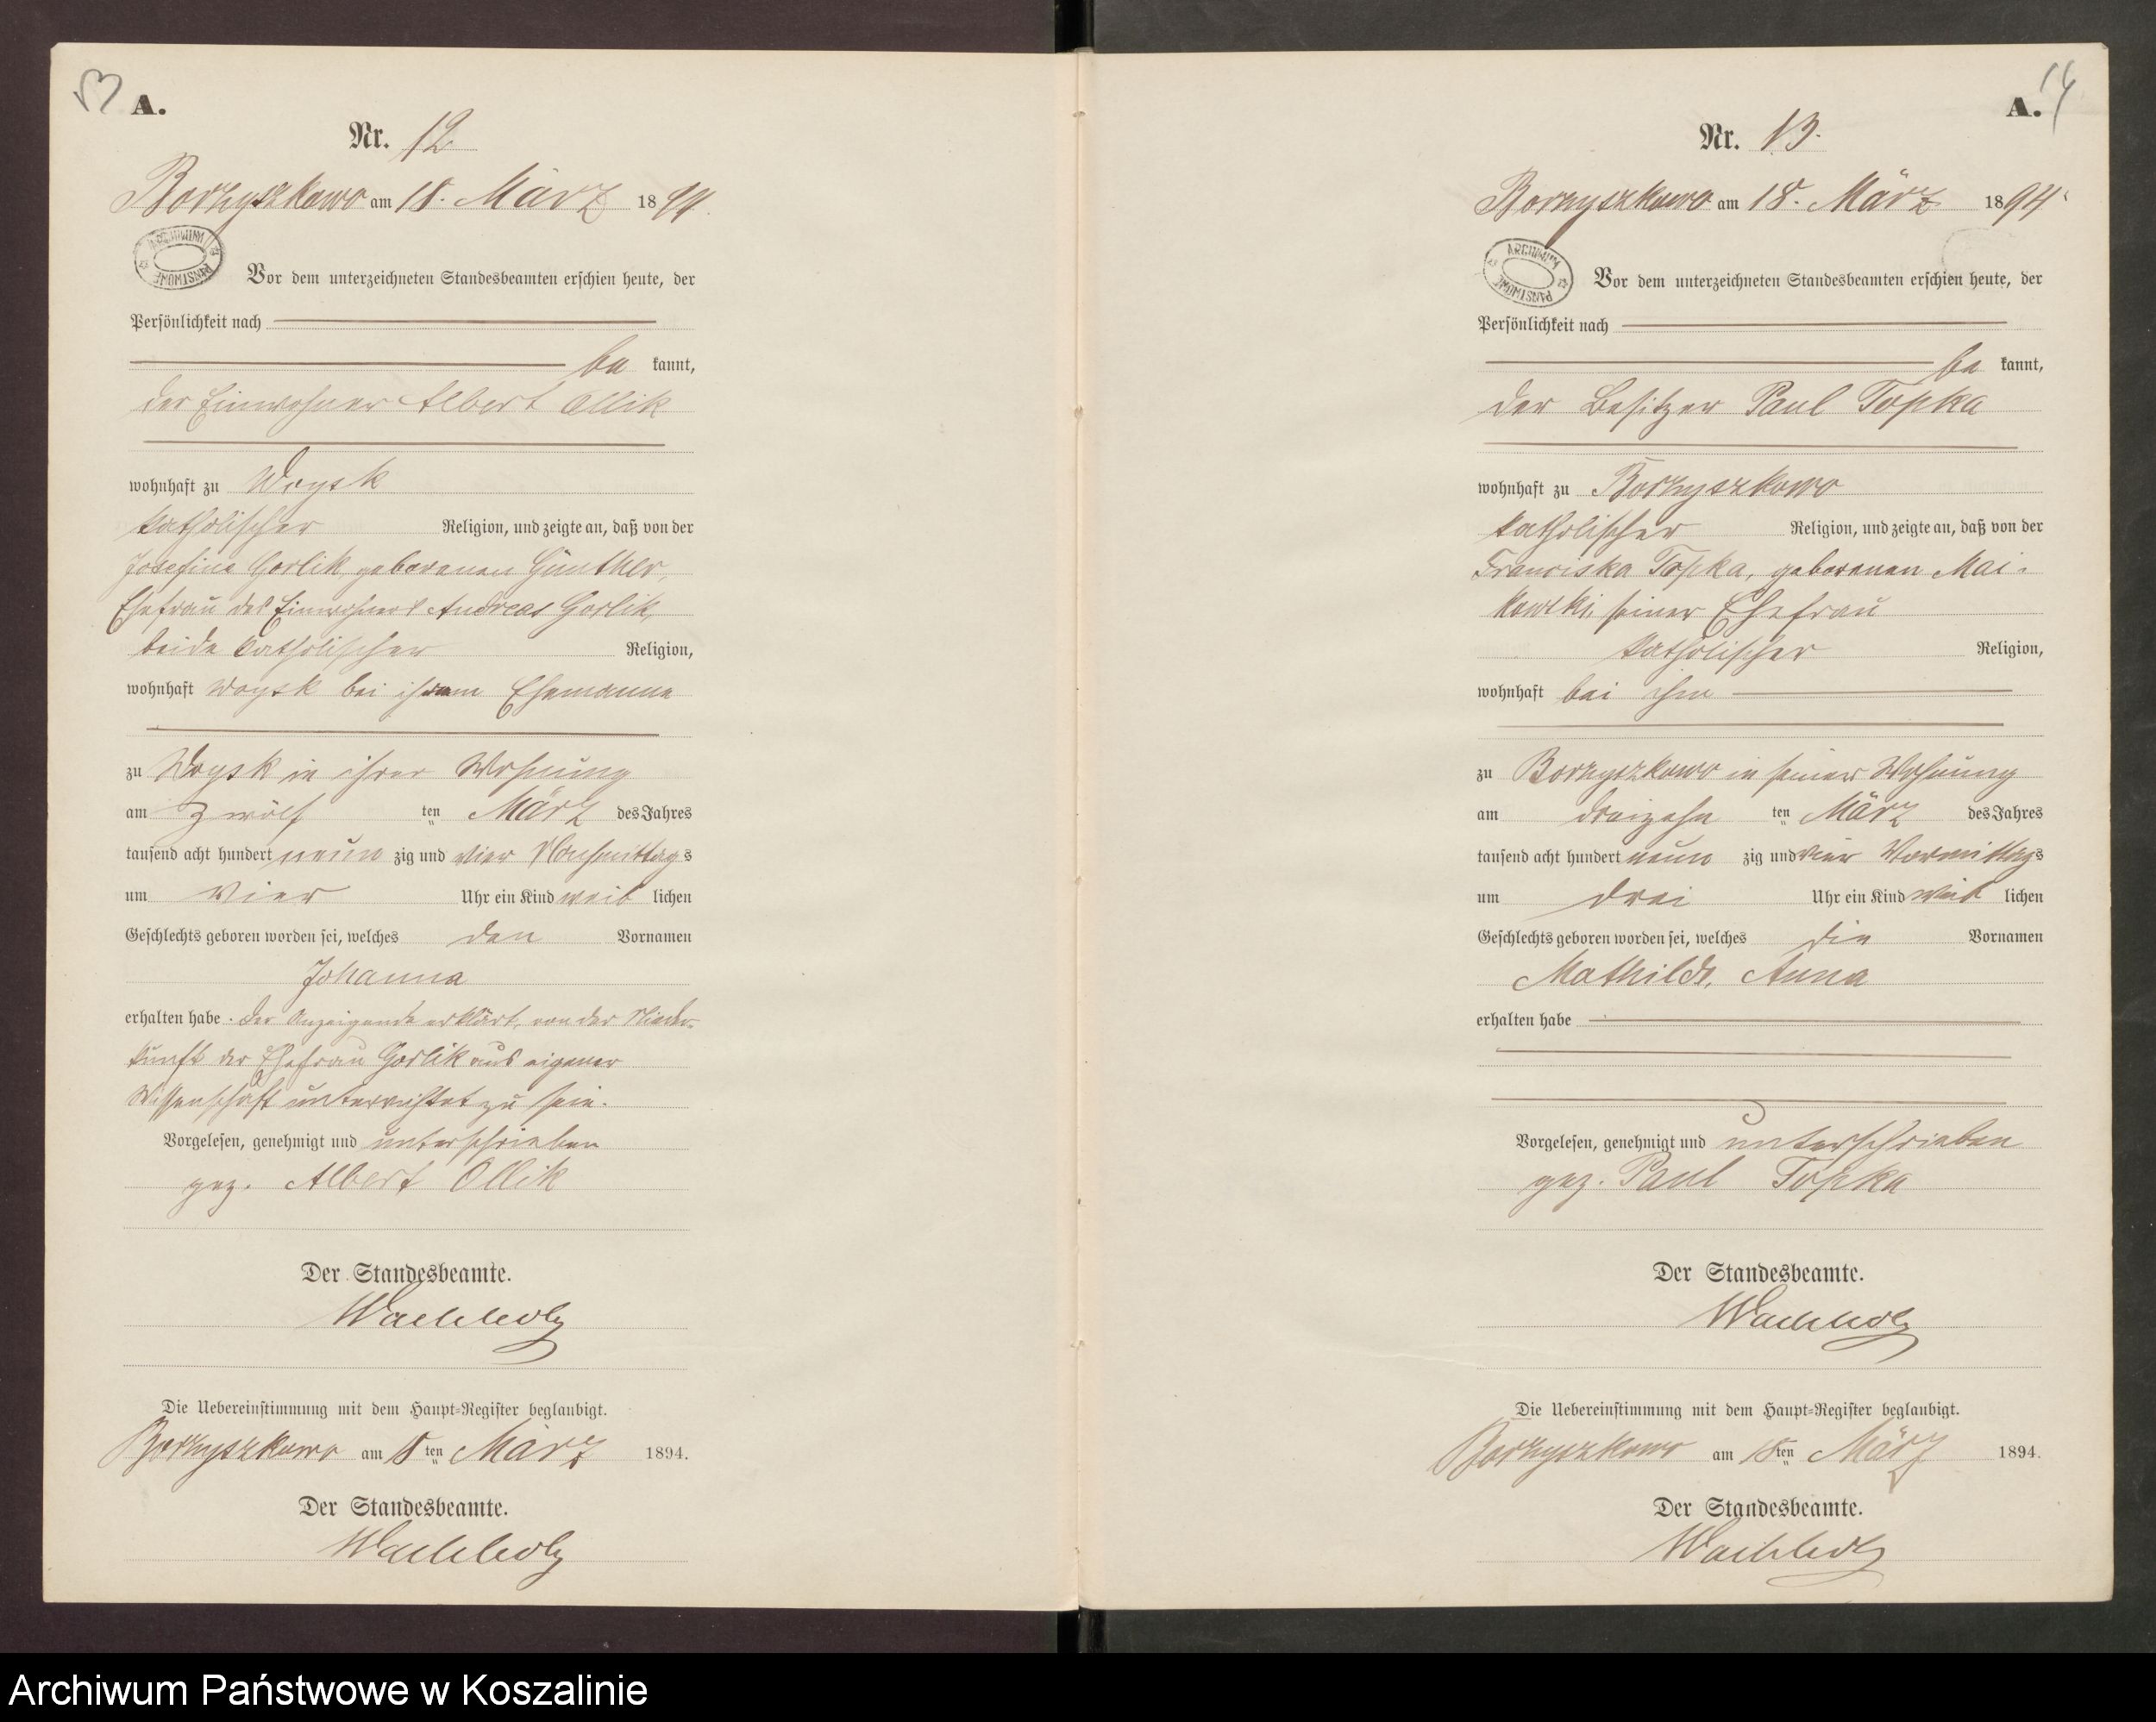 13
A.
Nr. 12
Borzyszkowo am 18. März 1894.
ARCHIWUM PAŃSTWOWE
Vor dem unterzeichneten Standesbeamten erschien heute, der
Persönlichkeit nach
be kannt,
der Einwohner Albert Ollik
wohnhaft zu Woysk
katholischer Religion, und zeigte an, daß von der
Josefine Gorlik, geborenen Günther,
Ehefrau des Einwohners Andreas Gorlik,
beide katholischer Religion,
wohnhaft Woysk bei ihrem Ehemanne
zu Woysk in ihrer Wohnung
am zwölf ten März des Jahres
tausend acht hundert neun zig und vier Nachmittags
um vier Uhr ein Kind weib lichen
Geschlechts geboren worden sei, welches den Vornamen
Johanna
erhalten habe. Der Anzeigende erklärt, von der Nieder-
kunft der Ehefrau Gorlik aus eigener
Wissenschaft unterrichtet zu sein.
Vorgelesen, genehmigt und unterschrieben
gez. Albert Ollik
Der Standesbeamte.
Wachholz
Die Uebereinstimmung mit dem Haupt-Register beglaubigt.
Borzyszkowo am 18 ten März 1894.
Der Standesbeamte.
Wachholz
14
A.
Nr. 13.
Borzyszkowo am 18. März 1894.
ARCHIWUM PAŃSTWOWE
Vor dem unterzeichneten Standesbeamten erschien heute, der
Persönlichkeit nach
be kannt,
der Besitzer Paul Topka
wohnhaft zu Borzyszkowo
katholischer Religion, und zeigte an, daß von der
Franciska Topka, geborenen Mai-
kowski, seiner Ehefrau
katholischer Religion,
wohnhaft bei ihm
zu Borzyszkowo in seiner Wohnung
am dreizehn ten März des Jahres
tausend acht hundert neun zig und vier Vormittags
um drei Uhr ein Kind weib lichen
Geschlechts geboren worden sei, welches die Vornamen
Mathilde, Anna
erhalten habe
Vorgelesen, genehmigt und unterschrieben
gez. Paul Topka
Der Standesbeamte.
Wachholz
Die Uebereinstimmung mit dem Haupt-Register beglaubigt.
Borzyszkowo am 18 ten März 1894.
Der Standesbeamte.
Wachholz
Archiwum Państwowe w Koszalinie